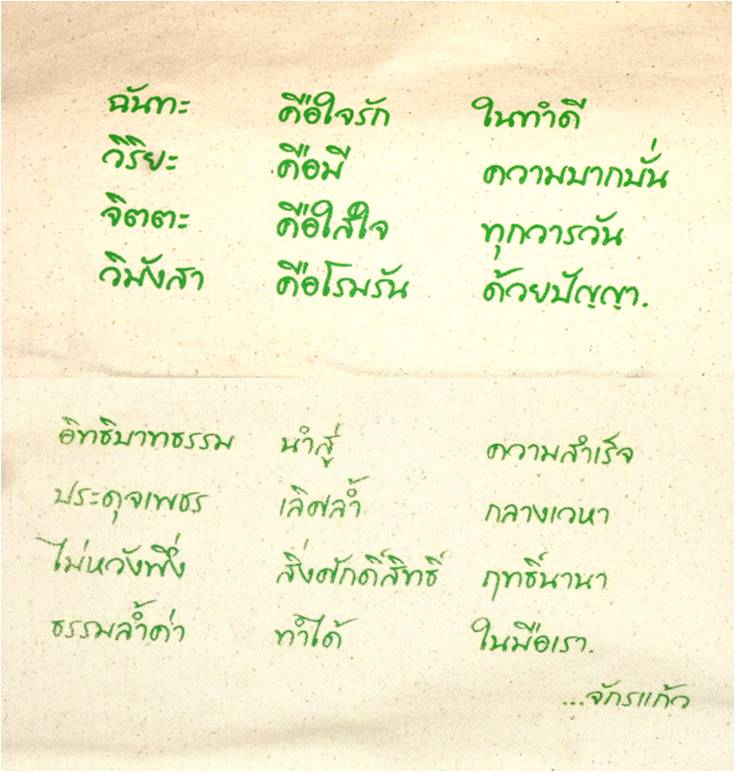 ฉันทะ คือใจรัก ในทำดี
วิริยะ คือมี ความบากบั่น
จิตตะ คือใส่ใจ ทุกวารวัน
วิมังสา คือโรมรัน ด้วยปัญญา.
อิทธิบาทธรรม นำสู่ ความสำเร็จ
ประดุจเพชร เลิศล้ำ กลางเวหา
ไม่หวังพึ่ง สิ่งศักดิ์สิทธิ์ ฤทธิ์นานา
ธรรมล้ำค่า ทำได้ ในมือเรา.
...จักรแก้ว